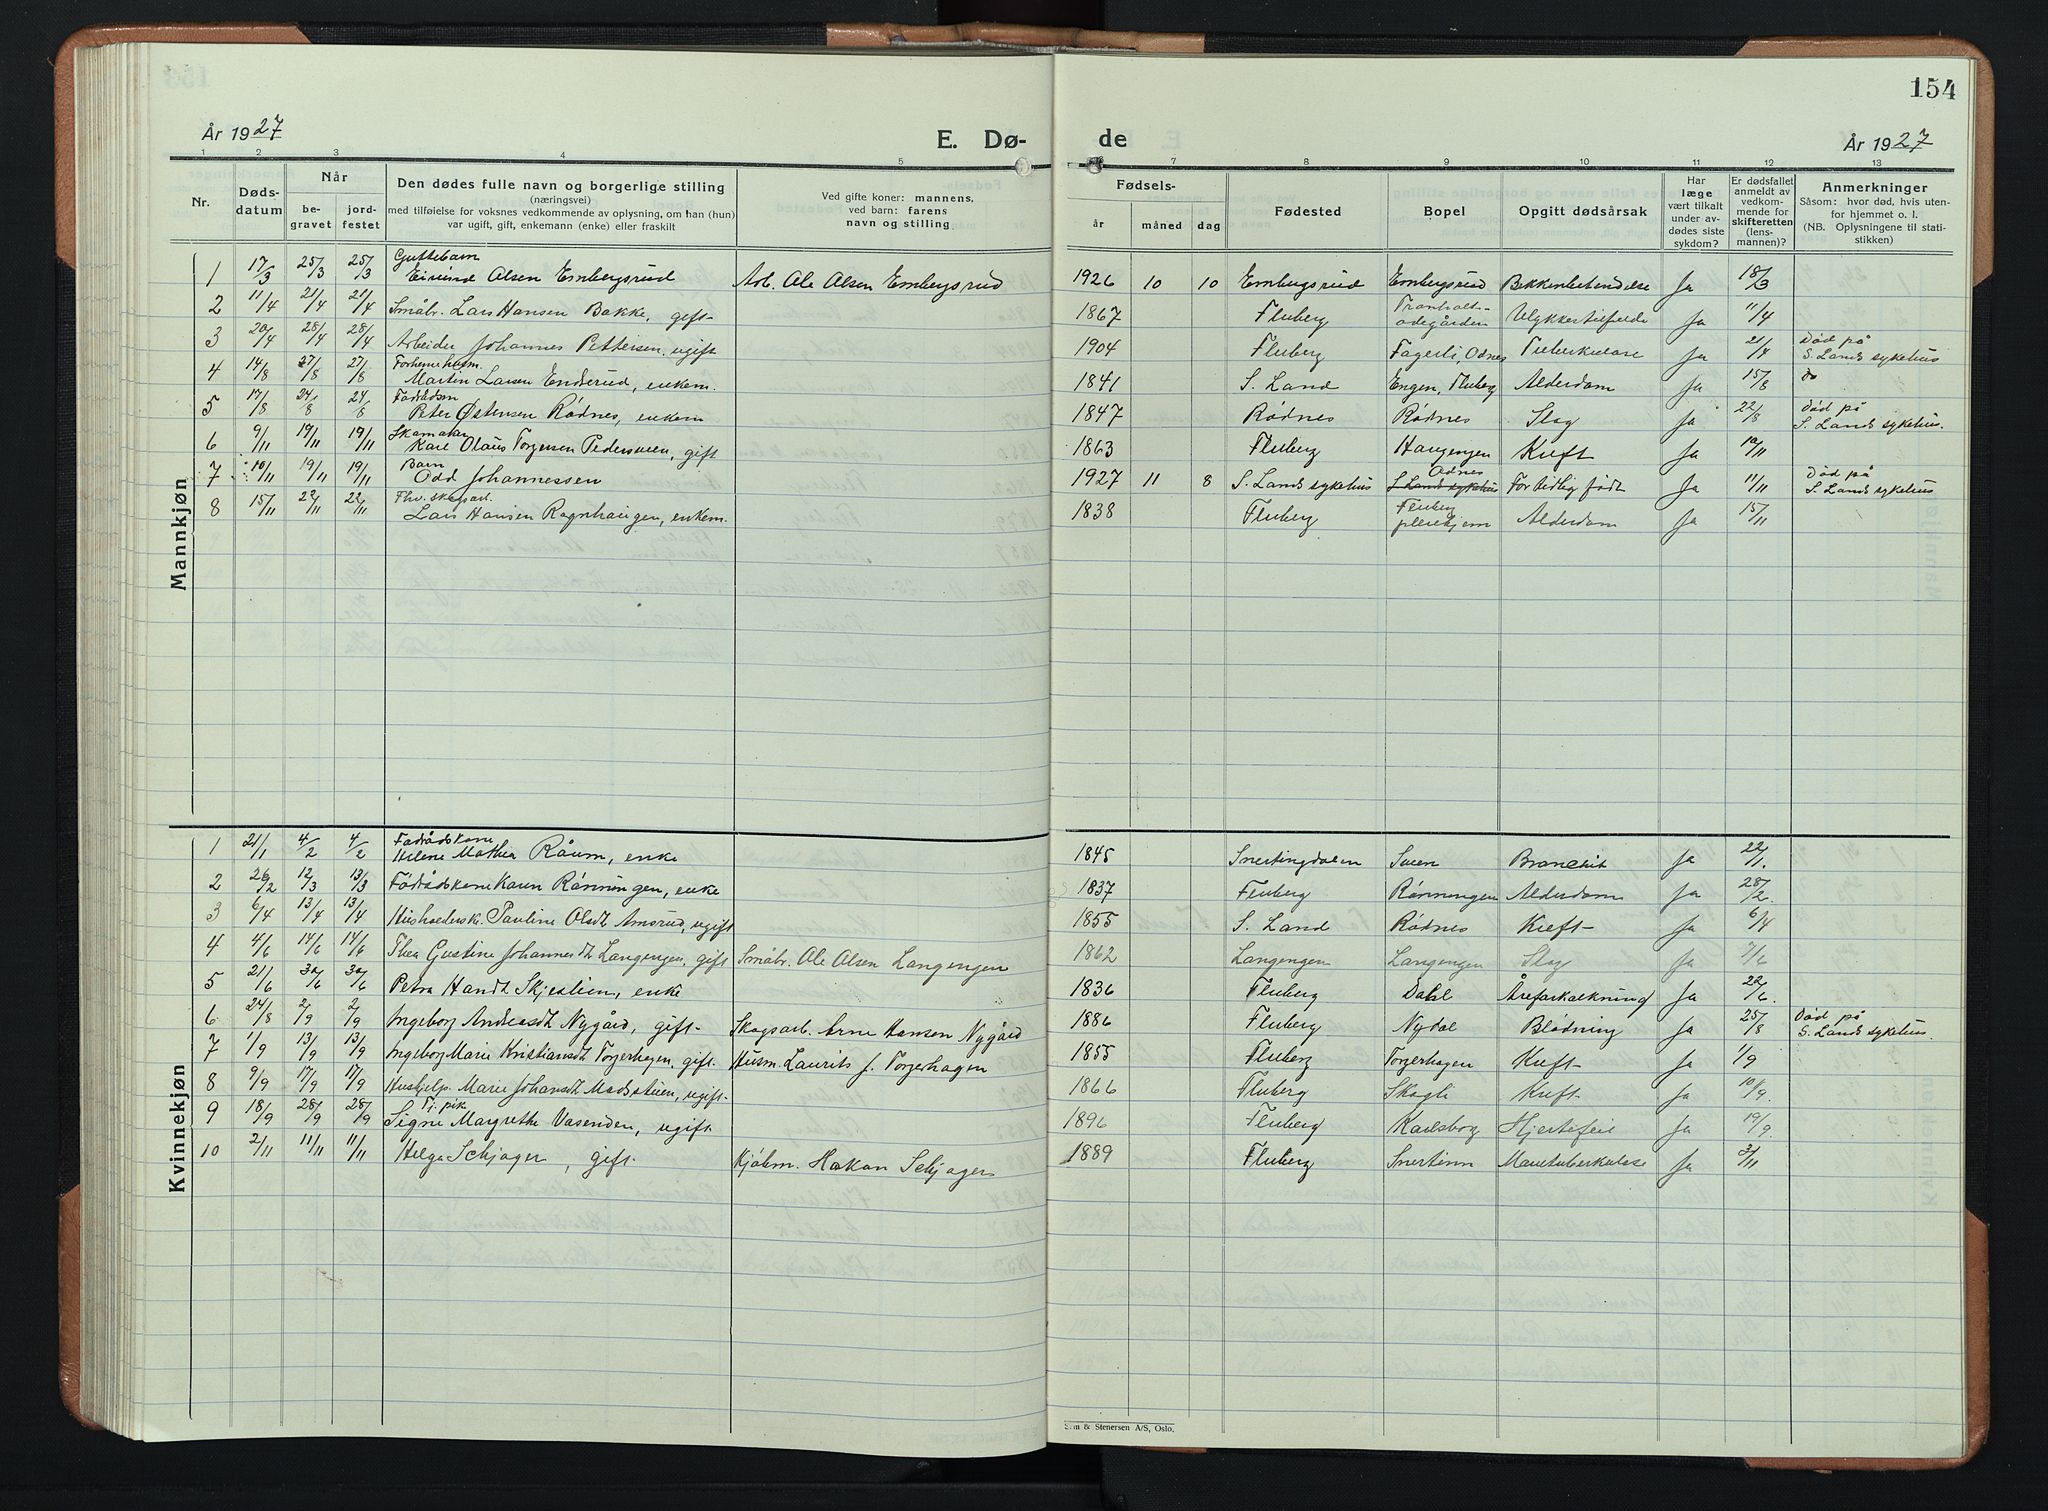 154
År 1927
E. Dø-
de
År 1927
1 2 3 4 5 6 7 8 9 10 11 12 13
Nr.
Døds-
datum
Når
be-
gravet
jord-
festet
Den dødes fulle navn og borgerlige stilling
(næringsvei)
med tilføielse for voksnes vedkommende av oplysning, om han (hun)
var ugift, gift, enkemann (enke) eller fraskilt
Ved gifte koner: mannens,
ved barn: farens
navn og stilling.
Fødsels-
år måned dag
Fødested
Bopel
Opgitt dødsårsak
Har
læge
vært tilkalt
under av-
dødes siste
sykdom?
Er dødsfallet
anmeldt av
vedkom-
mende for
skifteretten
(lens-
mannen)?
Anmerkninger
Såsom: hvor død, hvis uten-
for hjemmet o. l.
(NB. Oplysningene til stati-
stikken)
Mannkjøn
Guttebarn
1 17/3 25/3 25/3 Eivind Olsen Embergsrud Arb. Ole Olsen Embergsrud 1926 10 10 Embergsrud Embergsrud Bekkenbetendelse Ja 18/3
2 11/4 21/4 21/4 Småbr. Lars Hansen Bakke, gift 1867 Fluberg Tranholt-
ødegården Ulykkestilfelde Ja 11/4
3 20/4 28/4 28/4 Arbeider Johannes Pettersen, ugift 1904 Fluberg Fagerli, Odnes Tuberkulose Ja 21/4 Død på
S. Lands sykehus
Forhenv. husm.
4 14/8 27/8 27/8 Martin Larsen Enderud, enkem. 1841 S. Land Engen, Fluberg Alderdom Ja 15/8 do
Føderådsm
5 17/8 24/8 24/8 Peter Østensen Rødnes, enkem 1847 Rødnes Rødnes Slag Ja 22/8 Død på
S. Lands sykehus.
Skomaker
6 9/11 19/11 19/11 Karl Olaus Torgersen Pedersveen, gift 1863 Fluberg Haugengen Kreft Ja 10/11
Barn
7 10/11 19/11 19/11 Odd Johannessen 1927 11 8 S. Lands sykehus Odnes
S. Lands sykehus For tidlig født Ja 11/11 Død på
S. Lands sykehus
Fhv. skogsarb.
8 15/11 22/11 22/11 Lars Hansen Rognhaugen, enkem. 1838 Fluberg Fluberg
pleiehjem Alderdom Ja 15/11
Kvinnekjøn
Føderådskone
1 21/1 4/2 4/2 Helene Mathea Råum, enke 1845 Snertingdalen Sveen Bronchit Ja 22/1.
2 26/2 12/3 13/3 Føderådskone Karen Rønningen, enke 1837 Fluberg Rønningen Alderdom Ja 28/2.
3 6/4 13/4 13/4 Husholderske Pauline Olsdt Amsrud, ugift 1855 S. Land Rødnes Kreft Ja 6/4
4 4/6 14/6 14/6 Thea Gustine Johannesdt Langengen, gift Småbr. Ole Olsen Langengen 1862 Langengen Langengen Slag Ja 7/6
5 21/6 30/6 30/6 Petra Handt Skjeslien, enke 1836 Fluberg Dahl Åreforkalkning Ja 22/6.
6 24/8 2/9 2/9 Ingeborg Andreasdt Nygård, gift Skogsarb. Arne Hansen Nygård 1886 Fluberg Nydal Blødning Ja 25/8 Død på
S. Lands sykehus.
7 1/9 13/9 13/9 Ingeborg Marie Kristiansdt Torgerhagen, gift. Husm. Laurits J. Torgerhagen 1855 Fluberg Torgerhagen Kreft Ja 1/9
8 9/9 17/9 17/9 Hushjelp. Marie Johansdt Madsstuen, ugift. 1866 Fluberg Skogli Kreft Ja 10/9.
Tj. pik
9 18/9 28/9 28/9 Signe Margrethe Vasenden, ugift 1896 Fluberg Karlsborg Hjertefeil Ja 19/9.
10 2/11 11/11 11/11 Helga Schjager, gift. Kjøbm. Håkon Schjager 1889 Fluberg Snertinn Mavetuberkulose Ja 3/11
Sem & Stenersen A/S, Oslo.